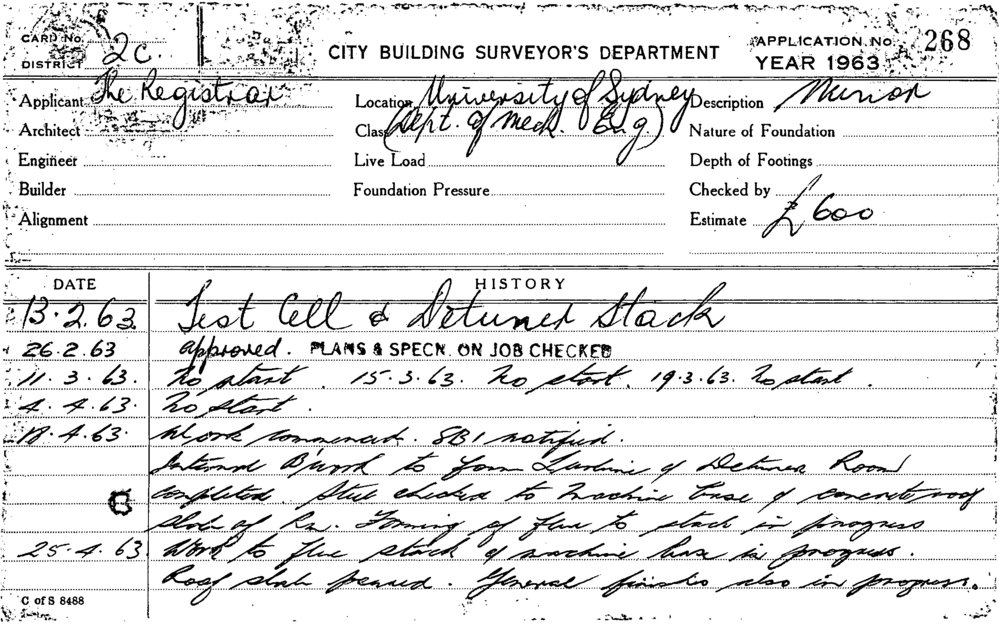 CARD No.
DISTRICT 2C.
CITY BUILDING SURVEYOR'S DEPARTMENT
APPLICATION No. 268
YEAR 1963
Applicant The Registrar Location University of Sydney Description Minor
Architect Class (Dept. of Mech. Eng) Nature of Foundation
Engineer Live Load Depth of Footings
Builder Foundation Pressure Checked by
Alignment Estimate £600
DATE HISTORY
13.2.63 Test Cell & Detuner Stack
26.2.63 approved. PLANS & SPECN. ON JOB CHECKED
11.3.63. No start. 15.3.63. No start. 19.3.63. No start.
4.4.63. No start.
18.4.63. Work commenced. SBI notified.
Internal B/work to form Turbine & Detuner Room
completed. Steel checked to machine base & concrete roof
slab of Rm. Forming of flue to stack in progress
25.4.63. Work to flue stack & machine base in progress.
Roof slab poured. General finishes also in progress.
C of S 8488